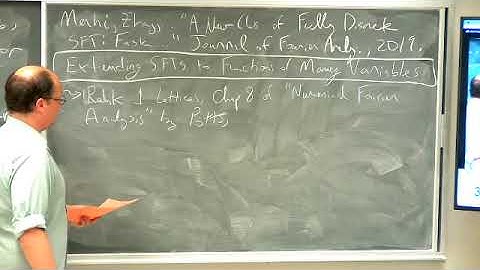 Merhi, Zhang, "A New Class of Fully Discrete
SFTs: Fast..." Journal of Fourier Analy., 2019.
Extending SFTs to Functions of Many Variables
Rank 1 Lattices, Chap 8 of "Numerical Fourier
Analysis" by Potts
3